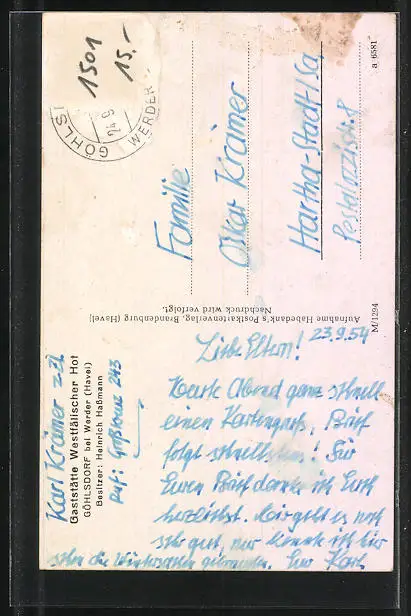 1501
15,-
GÖHLS
WERDER
24.9
Familie
Oskar Krämer
Hartha-Stadt i/Sa.
Pestalozzistr. 8
a 6581
Aufnahme Habedank's Postkartenverlag, Brandenburg (Havel)
Nachdruck wird verfolgt.
M/1294
Karl Krämer z.Zt.
Gaststätte Westfälischer Hof
GÖHLSDORF bei Werder (Havel)
Besitzer: Heinrich Haßmann
Ruf: Großkreuz 243
23.9.54
Liebe Eltern!
Heute Abend ganz schnell
einen Kartengruß, Brief
folgt schnellstens! Für
Euren Brief danke ich Euch
herzlichst. Mir geht es noch
sehr gut, nur könnte ich hier
schon die Wintersachen gebrauchen. Euer Karl.